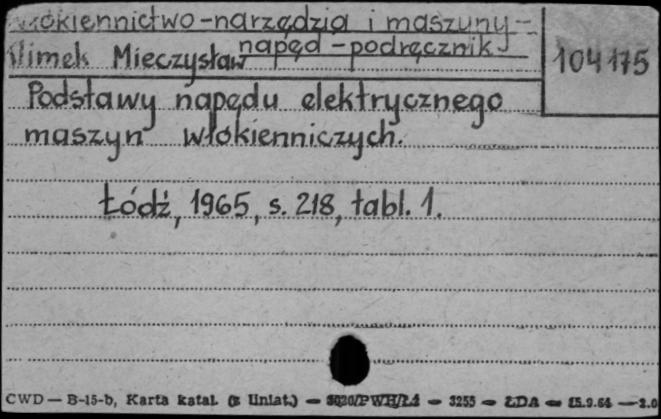 Włókiennictwo-narzędzia i maszyny-
napęd-podręcznik
Klimek Mieczysław
104175
Podstawy napędu elektrycznego
maszyn włókienniczych.
Łódź, 1965, s. 218, tabl. 1.
CWD — B-15-b, Karta katal. (z liniat.) — PWH/Łd — 3255 — ŁDA — 15.9.64 —